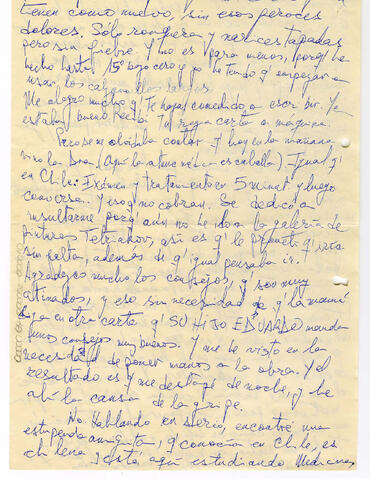 tienen como nuevo, sin esos peroces
dolores. Sólo ronquera y narices tapadas
pero sin fiebre. Y no es para menos, porq' ha
hecho hasta 15° bajo cero y yo he tenido q' empezar a
usar los
Me alegro mucho q' Te hayas comedido a escribir. Ya
estaba bueno recibir Tu carta a máquina.
Pero se me olvidaba contar q' hoy en la mañana
vino la Dra. (Aquí la atención médica es caballa) Igual q'
en Chile: Exámen y tratamiento en 5 minut. y luego
conversa. Y eso q' no cobran. Se dedicó a
insultarme porq' aún no he ido a la galería de
pinturas Tetriakov, así es q' le prometí q' iría
sin falta, además de q' igual pensaba ir.
Agradezco mucho los consejos, q' son muy
atinados, y eso sin necesidad de q' la mamá
diga en otra carta q' SU HIJO EDUARDO manda
unos consejos muy buenos. Y me he visto en la
necesidad de poner manos a la obra. Y el
resultado es q' me destapé de noche, y he
ahí la causa de la gripe.
No. Hablando en serio, encontré una
estupenda amiguita, q' conocía en Chile, es
chilena y está aquí estudiando